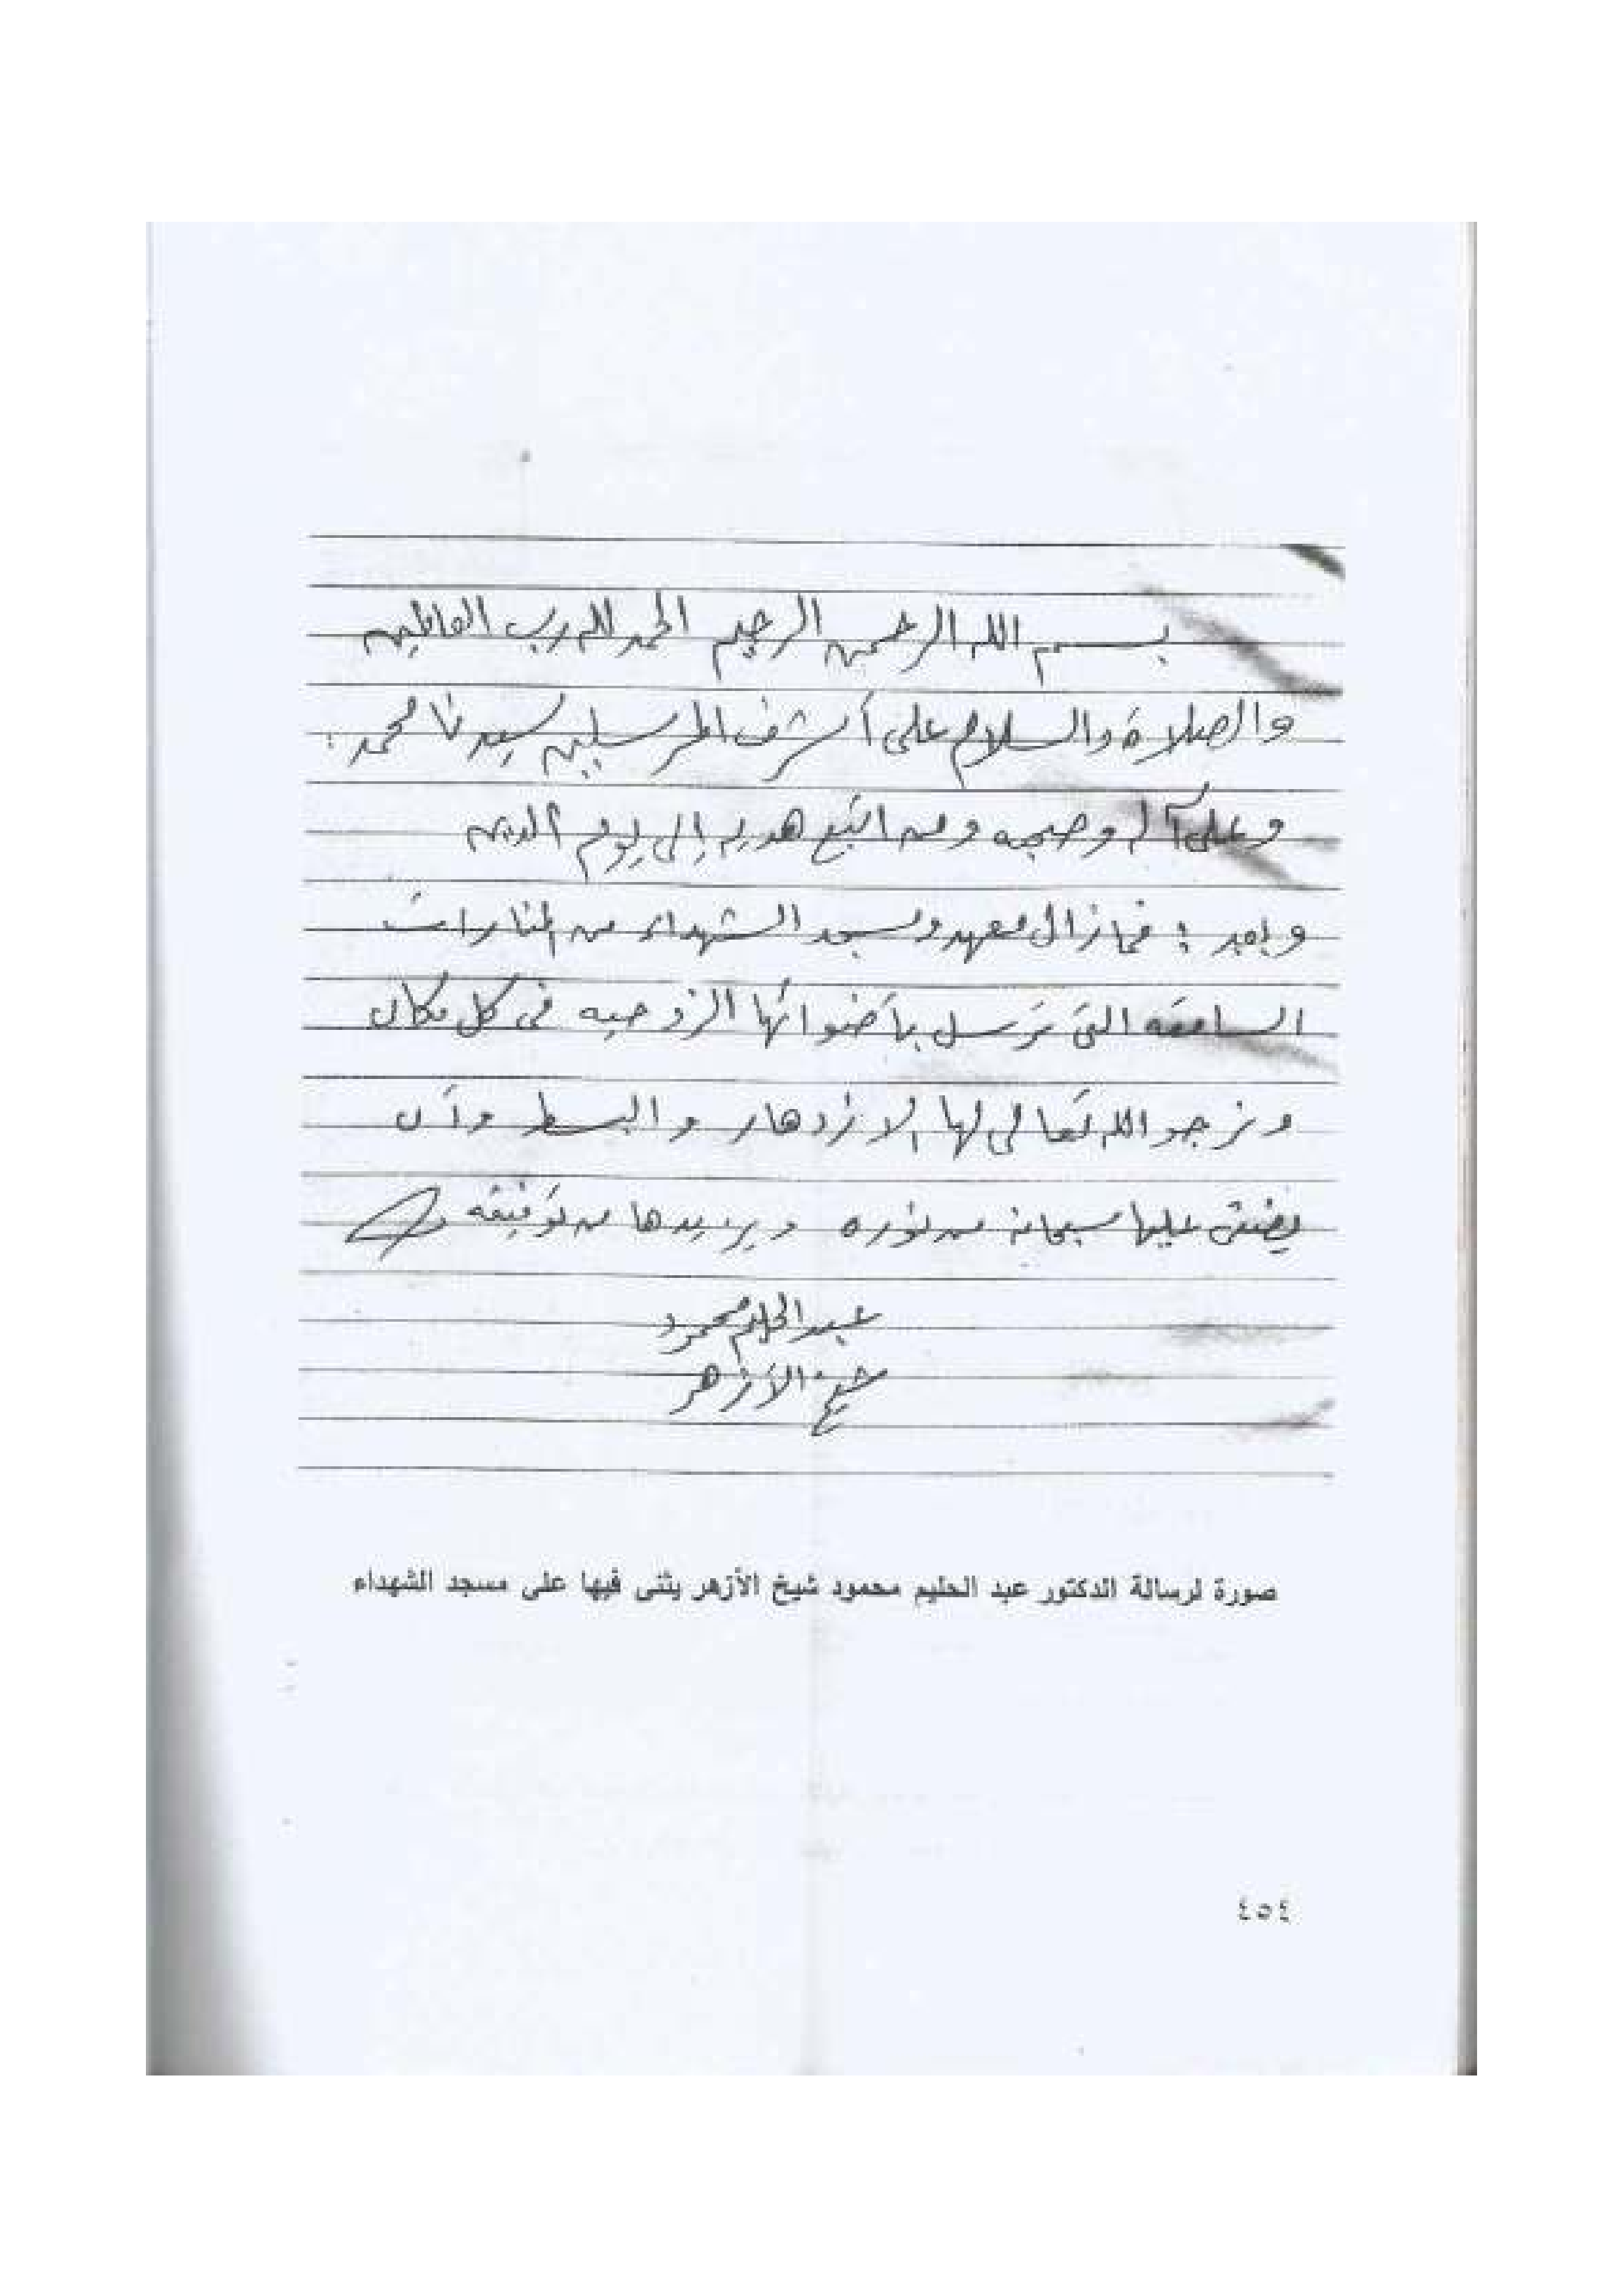 بسم الله الرحمن الرحيم الحمد لله رب العالمين
والصلاة والسلام على أشرف المرسلين سيدنا محمد :
وعلى آله وصحبه ومن اتبع هديه إلى يوم الدين
وبعد : فما زال معهد ومسجد الشهداء من المنارات
السامقه التى ترسل بأضوائها الروحيه فى كل مكان
ونرجو الله تعالى لها الازدهار والبسط وأن
يضفى عليها سبحانه من نوره ويزيدها من توفيقه
عبد الحليم محمود
شيخ الأزهر
صورة لرسالة الدكتور عبد الحليم محمود شيخ الأزهر يثنى فيها على مسجد الشهداء
٤٥٤